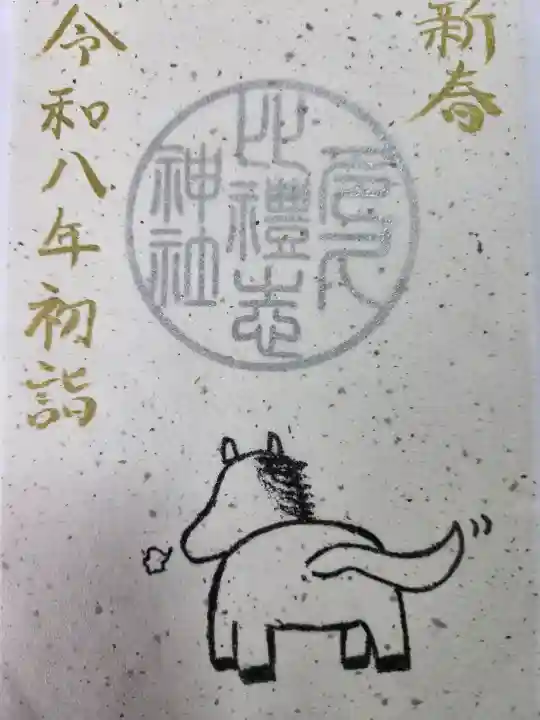 新春
比禮志
神社
令和八年初詣